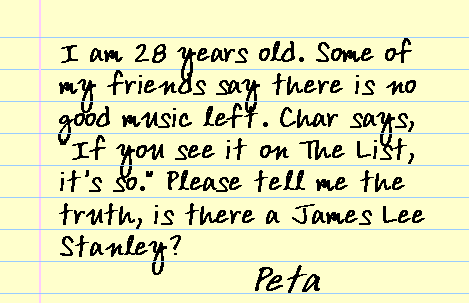 I am 28 years old. Some of
my friends say there is no
good music left. Char says,
"If you see it on The List,
it's so." Please tell me the
truth, is there a James Lee
Stanley?
Peta